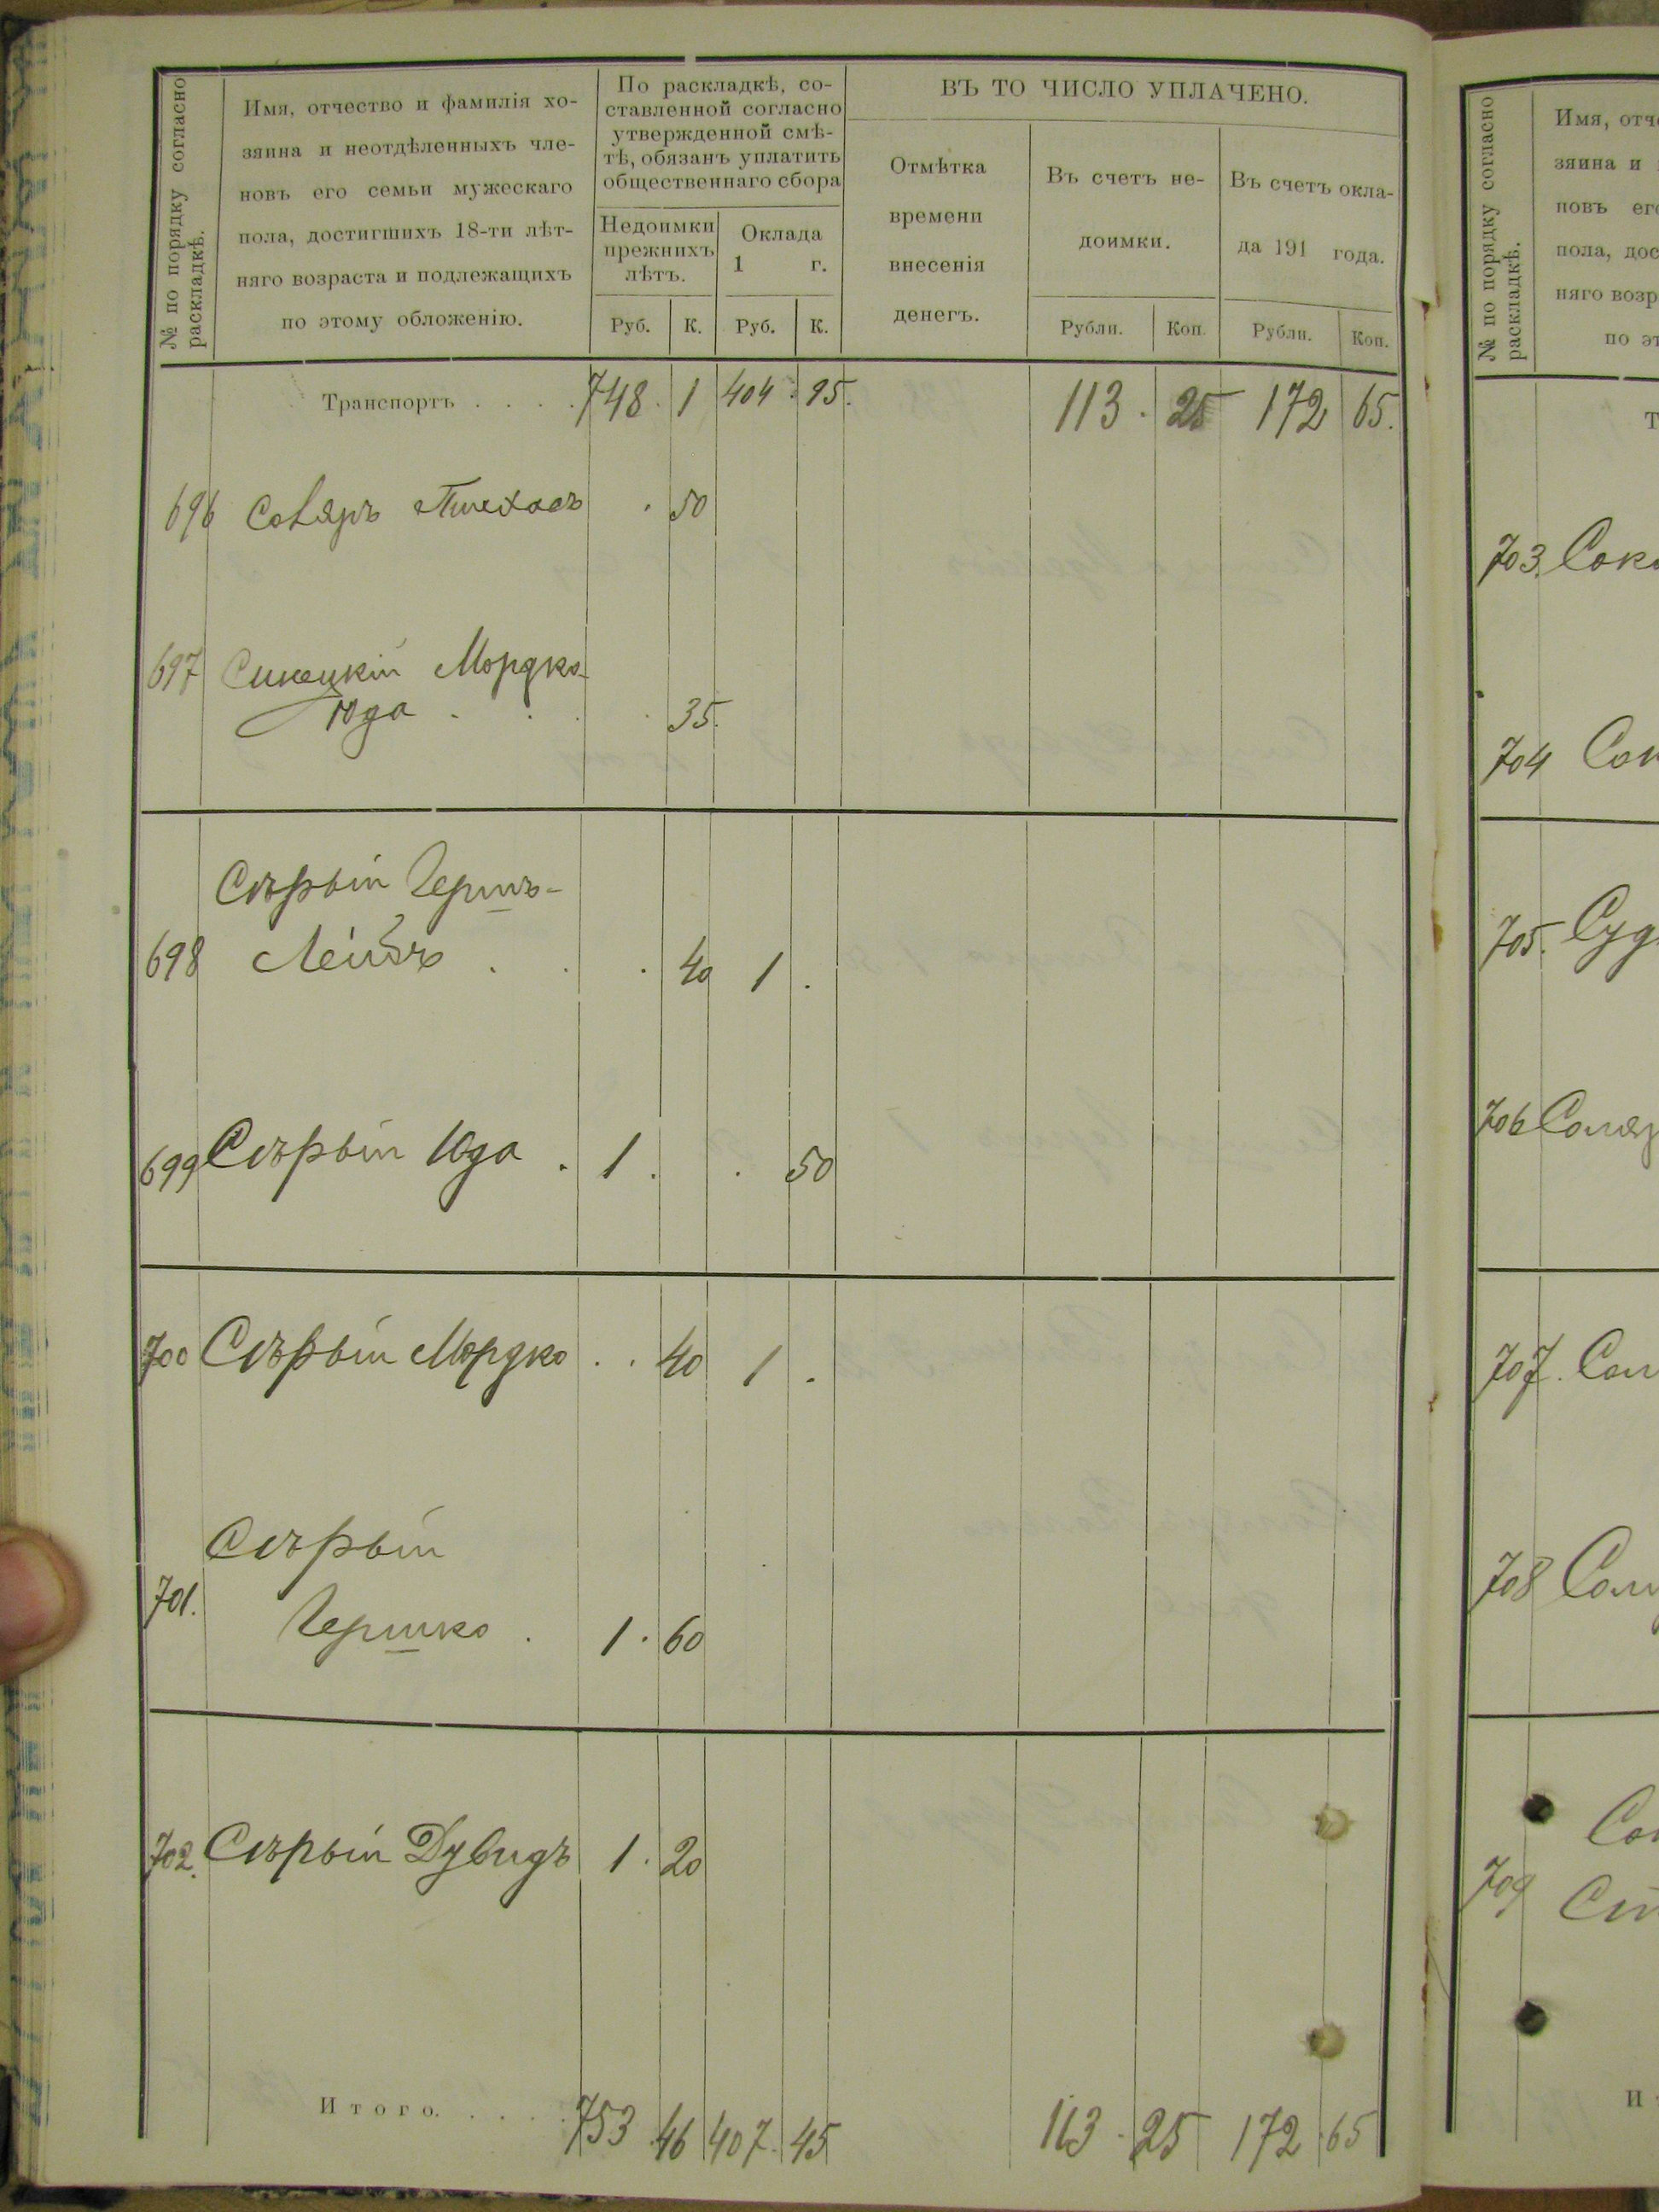 № по порядку согласно
раскладкѣ.
Имя, отчество и фамилія хо-
зяина и неотдѣленныхъ чле-
новъ его семьи мужескаго
пола, достигшихъ 18-ти лѣт-
няго возраста и подлежащихъ
по этому обложенію.
По раскладкѣ, со-
ставленной согласно
утвержденной смѣ-
тѣ, обязанъ уплатить
общественнаго сбора
Недоимки
прежнихъ
лѣтъ.
Оклада
1 г.
Руб. К. Руб. К.
ВЪ ТО ЧИСЛО УПЛАЧЕНО.
Отмѣтка
времени
внесенія
денегъ.
Въ счетъ не-
доимки.
Рубли. Коп.
Въ счетъ окла-
да 191 года.
Рубли. Коп.
Транспортъ . . . . 748 . 1 404 . 95. 113 . 25 172 65.
696 Совяръ Пинхасъ . 50
697 Синецкій Мордко-
Юда . . . . 35.
Сѣрый Гершъ-
698 Лейбъ . . . 40 1 .
699 Сѣрый Юда . 1 . . 50
700 Сѣрый Мордко . . 40 1 .
Сѣрый
701. Гершко . 1 . 60
702. Сѣрый Дувидъ 1 . 20
Итого. . . . . 753 . 46 407 . 45 113 . 25 172 . 65
№ по порядку согласно
раскладкѣ.
Имя, отч
зяина и
новъ ег
пола, дос
няго возр
по эт
Т
703.
704
705.
706
707.
708
709
И